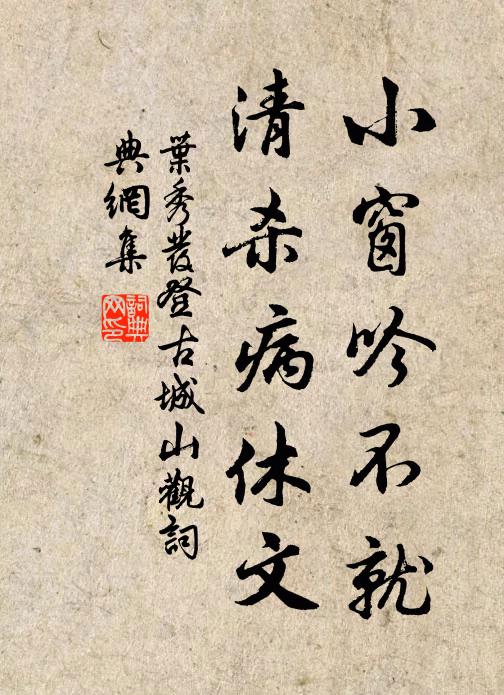 小窗吟不就
清杀病休文
葉秀發登古城山觀詞
典網集
詞典網印